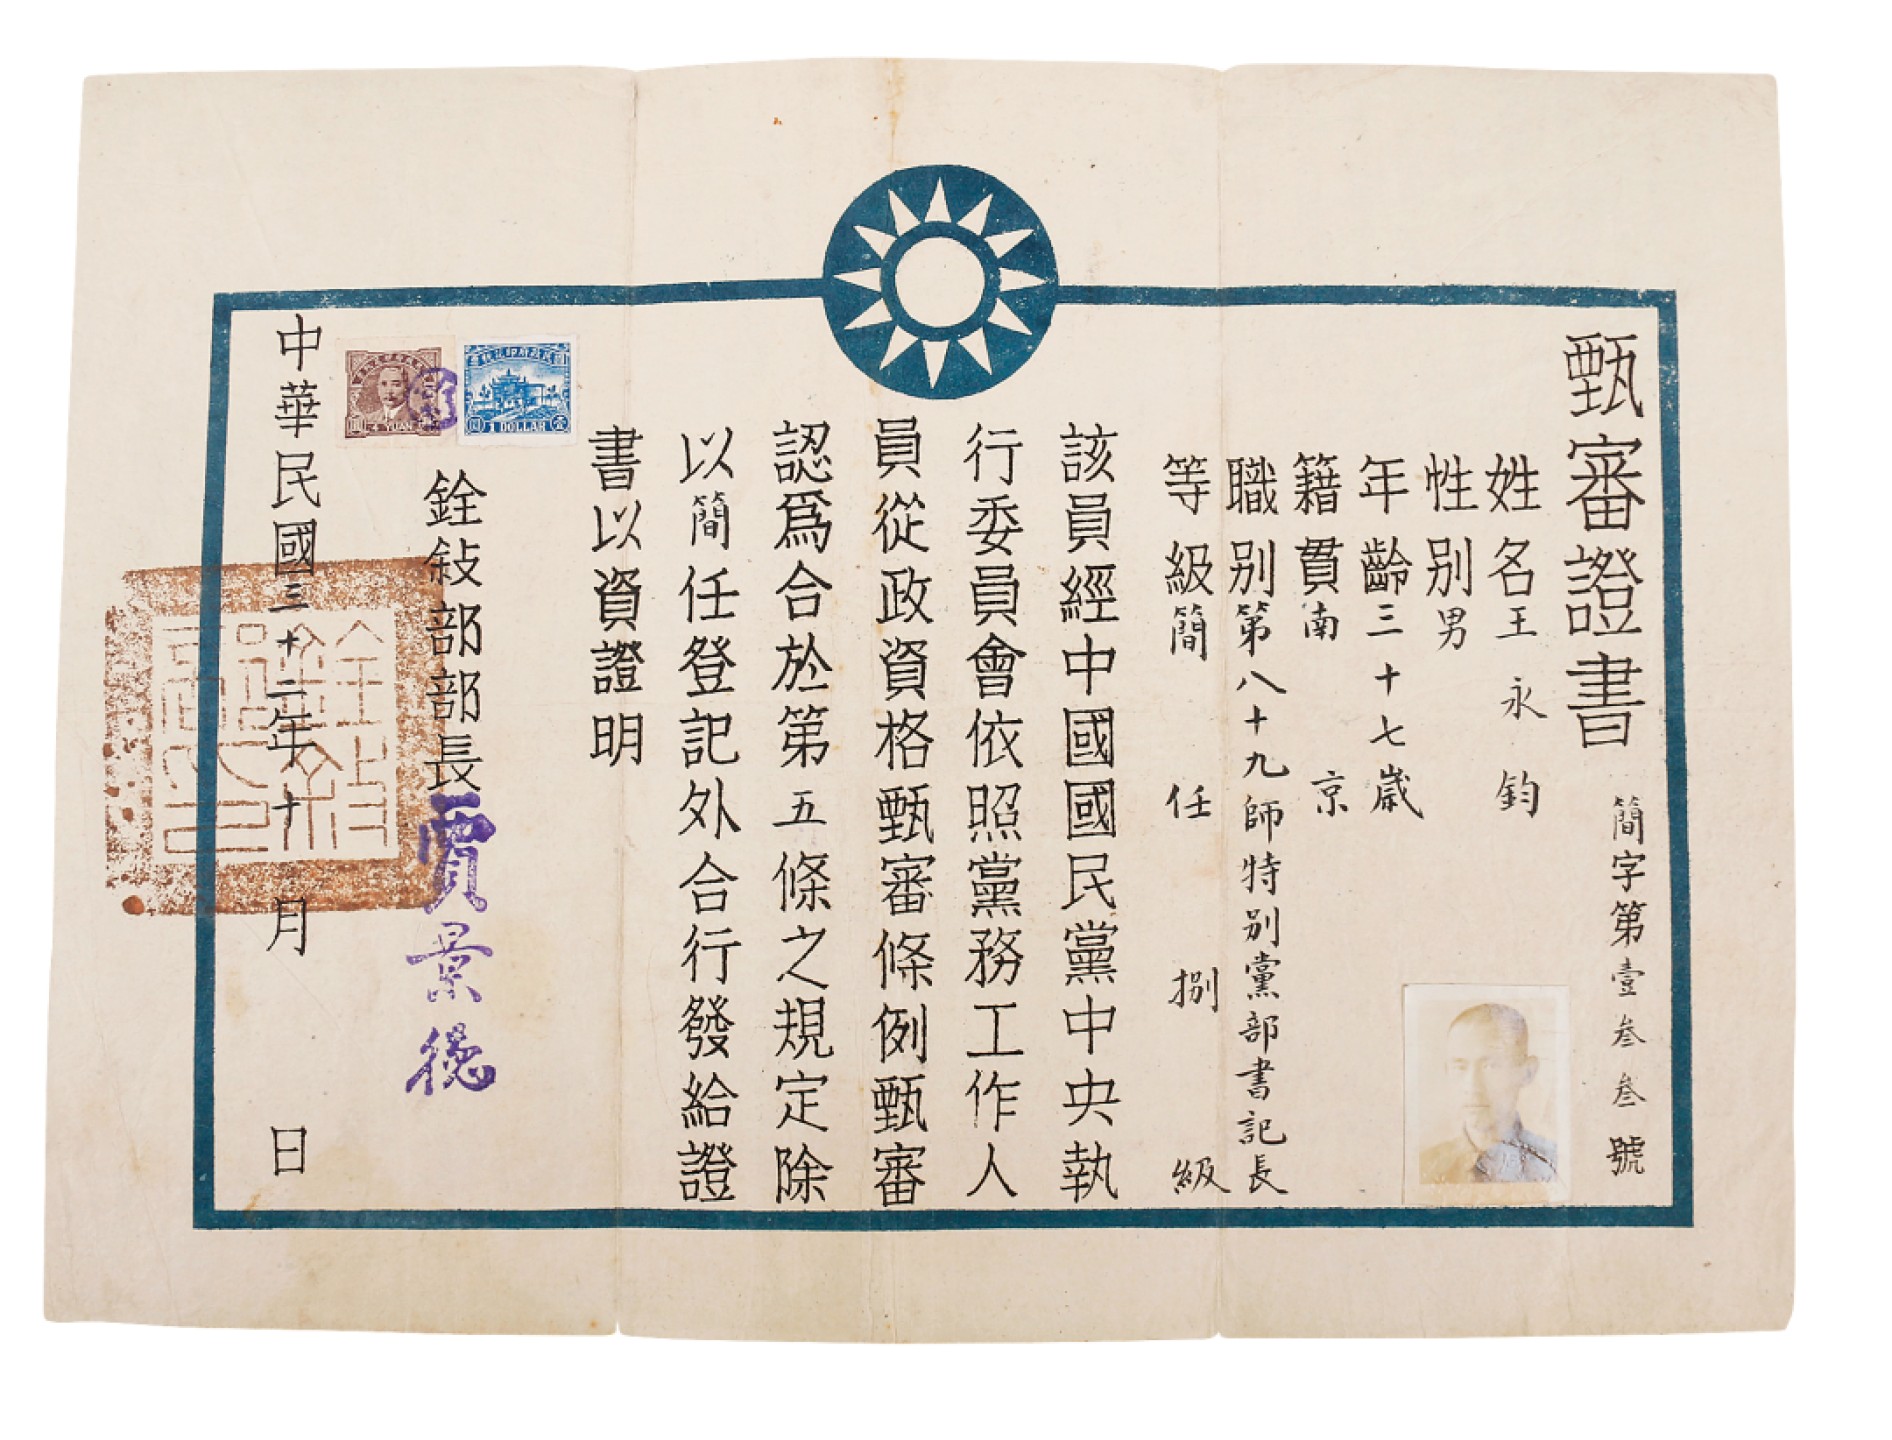 甄審證書
簡字第壹叁叁號
姓名王永鈞
性別男
年齡三十七歲
籍貫南京
職別第八十九師特別黨部書記長
等級簡任捌級
該員經中國國民黨中央執
行委員會依照黨務工作人
員從政資格甄審條例甄審
認爲合於第五條之規定除
以簡任登記外合行發給證
書以資證明
銓敍部部長賈景德
4 YUAN
1 DOLLAR
中華民國三十二年十月 日